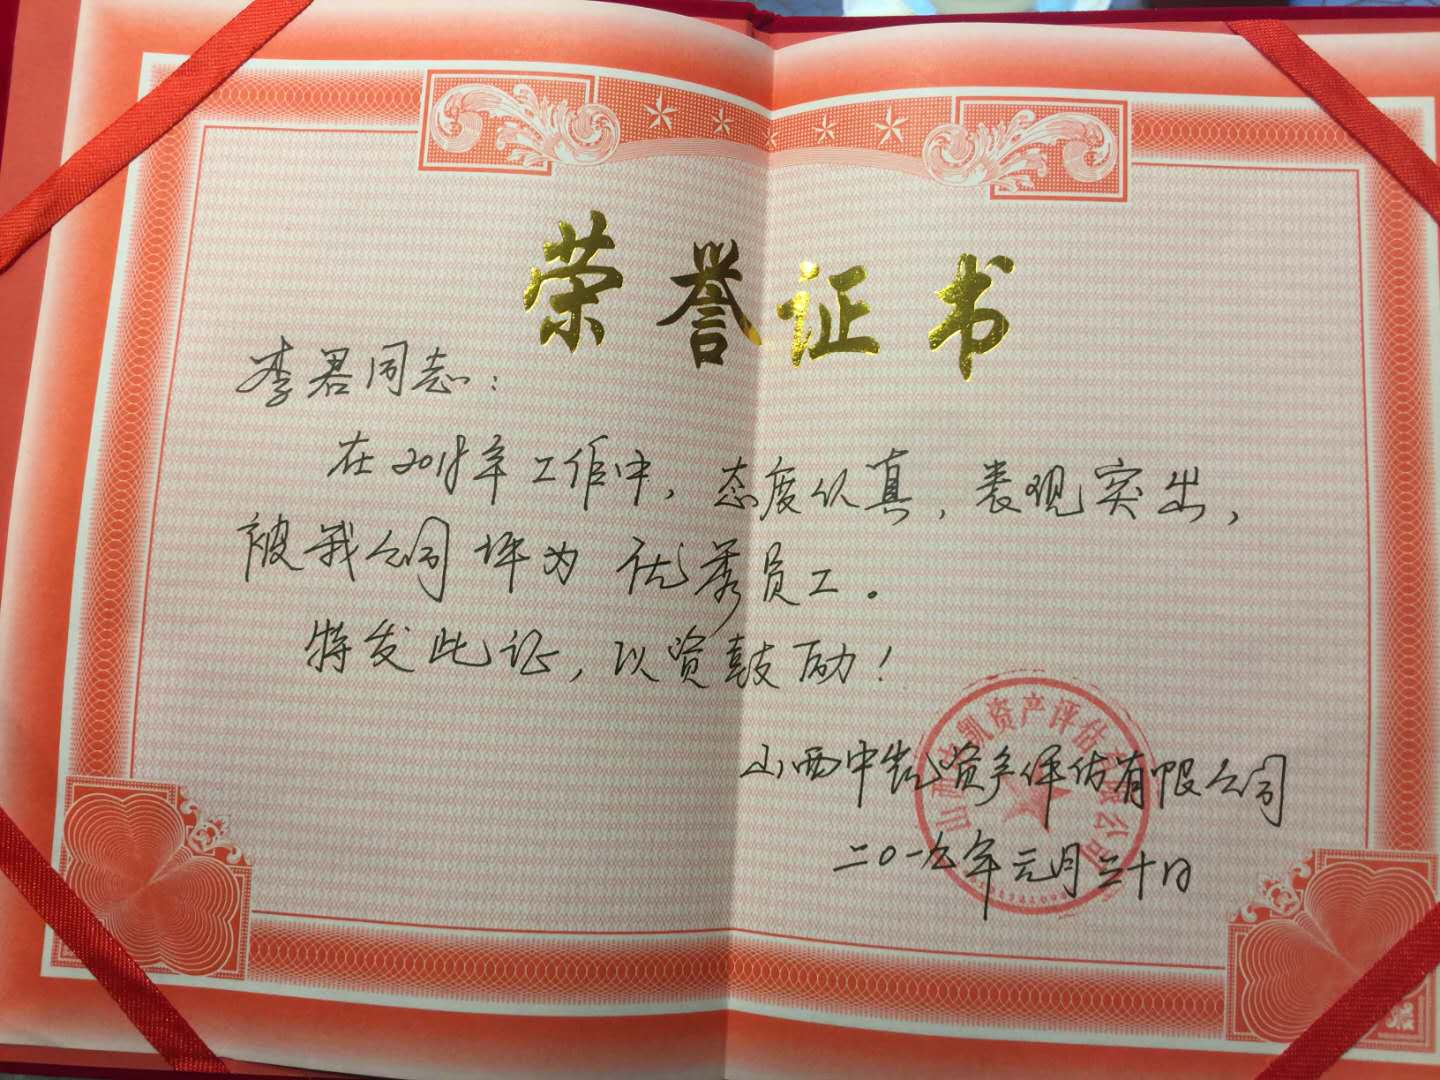 荣誉证书
李君同志：
在2018年工作中，态度认真，表现突出，
被我公司评为优秀员工。
特发此证，以资鼓励！
山西中凯资产评估有限公司
二〇一九年元月三十日
山西中凯资产评估有限公司